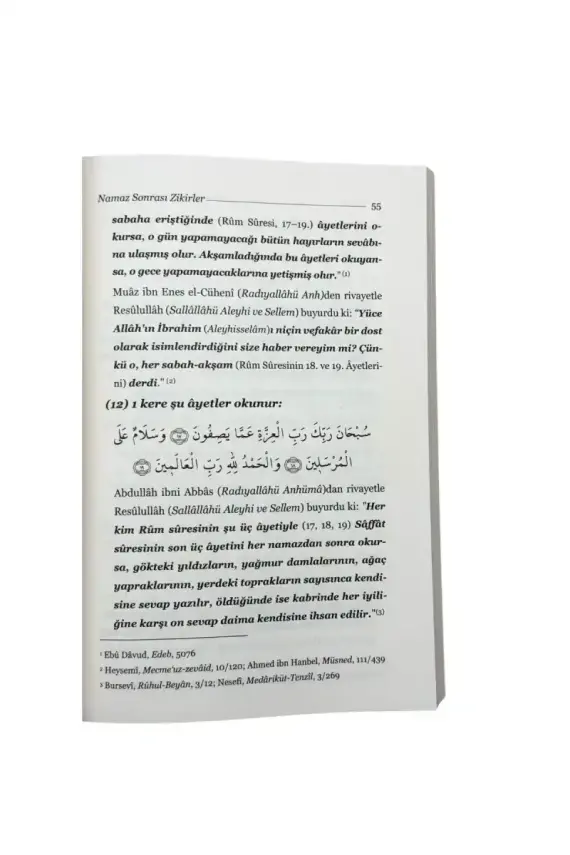 Namaz Sonrası Zikirler
55
sabaha eriştiğinde (Rûm Sûresi, 17–19.) âyetlerini o-
kursa, o gün yapamayacağı bütün hayırların sevâbı-
na ulaşmış olur. Akşamladığında bu âyetleri okuyan-
sa, o gece yapamayacaklarına yetişmiş olur." (1)
Muâz ibn Enes el-Cühenî (Radıyallâhü Anh)den rivayetle
Resûlullâh (Sallâllâhü Aleyhi ve Sellem) buyurdu ki: "Yüce
Allâh'ın İbrahim (Aleyhisselâm)ı niçin vefakâr bir dost
olarak isimlendirdiğini size haber vereyim mi? Çün-
kü o, her sabah-akşam (Rûm Sûresinin 18. ve 19. Âyetleri-
ni) derdi." (2)
(12) 1 kere şu âyetler okunur:
سُبْحَانَ رَبِّكَ رَبِّ الْعِزَّةِ عَمَّا يَصِفُونَ ﴿١٨٠﴾ وَسَلَامٌ عَلَى
الْمُرْسَلِينَ ﴿١٨١﴾ وَالْحَمْدُ لِلّٰهِ رَبِّ الْعَالَمِينَ ﴿١٨٢﴾
Abdullâh ibni Abbâs (Radıyallâhü Anhümâ)dan rivayetle
Resûlullâh (Sallâllâhü Aleyhi ve Sellem) buyurdu ki: "Her
kim Rûm sûresinin şu üç âyetiyle (17, 18, 19) Sâffât
sûresinin son üç âyetini her namazdan sonra okur-
sa, gökteki yıldızların, yağmur damlalarının, ağaç
yapraklarının, yerdeki toprakların sayısınca kendi-
sine sevap yazılır, öldüğünde ise kabrinde her iyili-
ğine karşı on sevap daima kendisine ihsan edilir."(3)
¹ Ebû Dâvud, Edeb, 5076
² Heysemî, Mecme'uz-zevâid, 10/120; Ahmed ibn Hanbel, Müsned, 111/439
³ Bursevî, Rûhul-Beyân, 3/12; Nesefî, Medâriküt-Tenzîl, 3/269